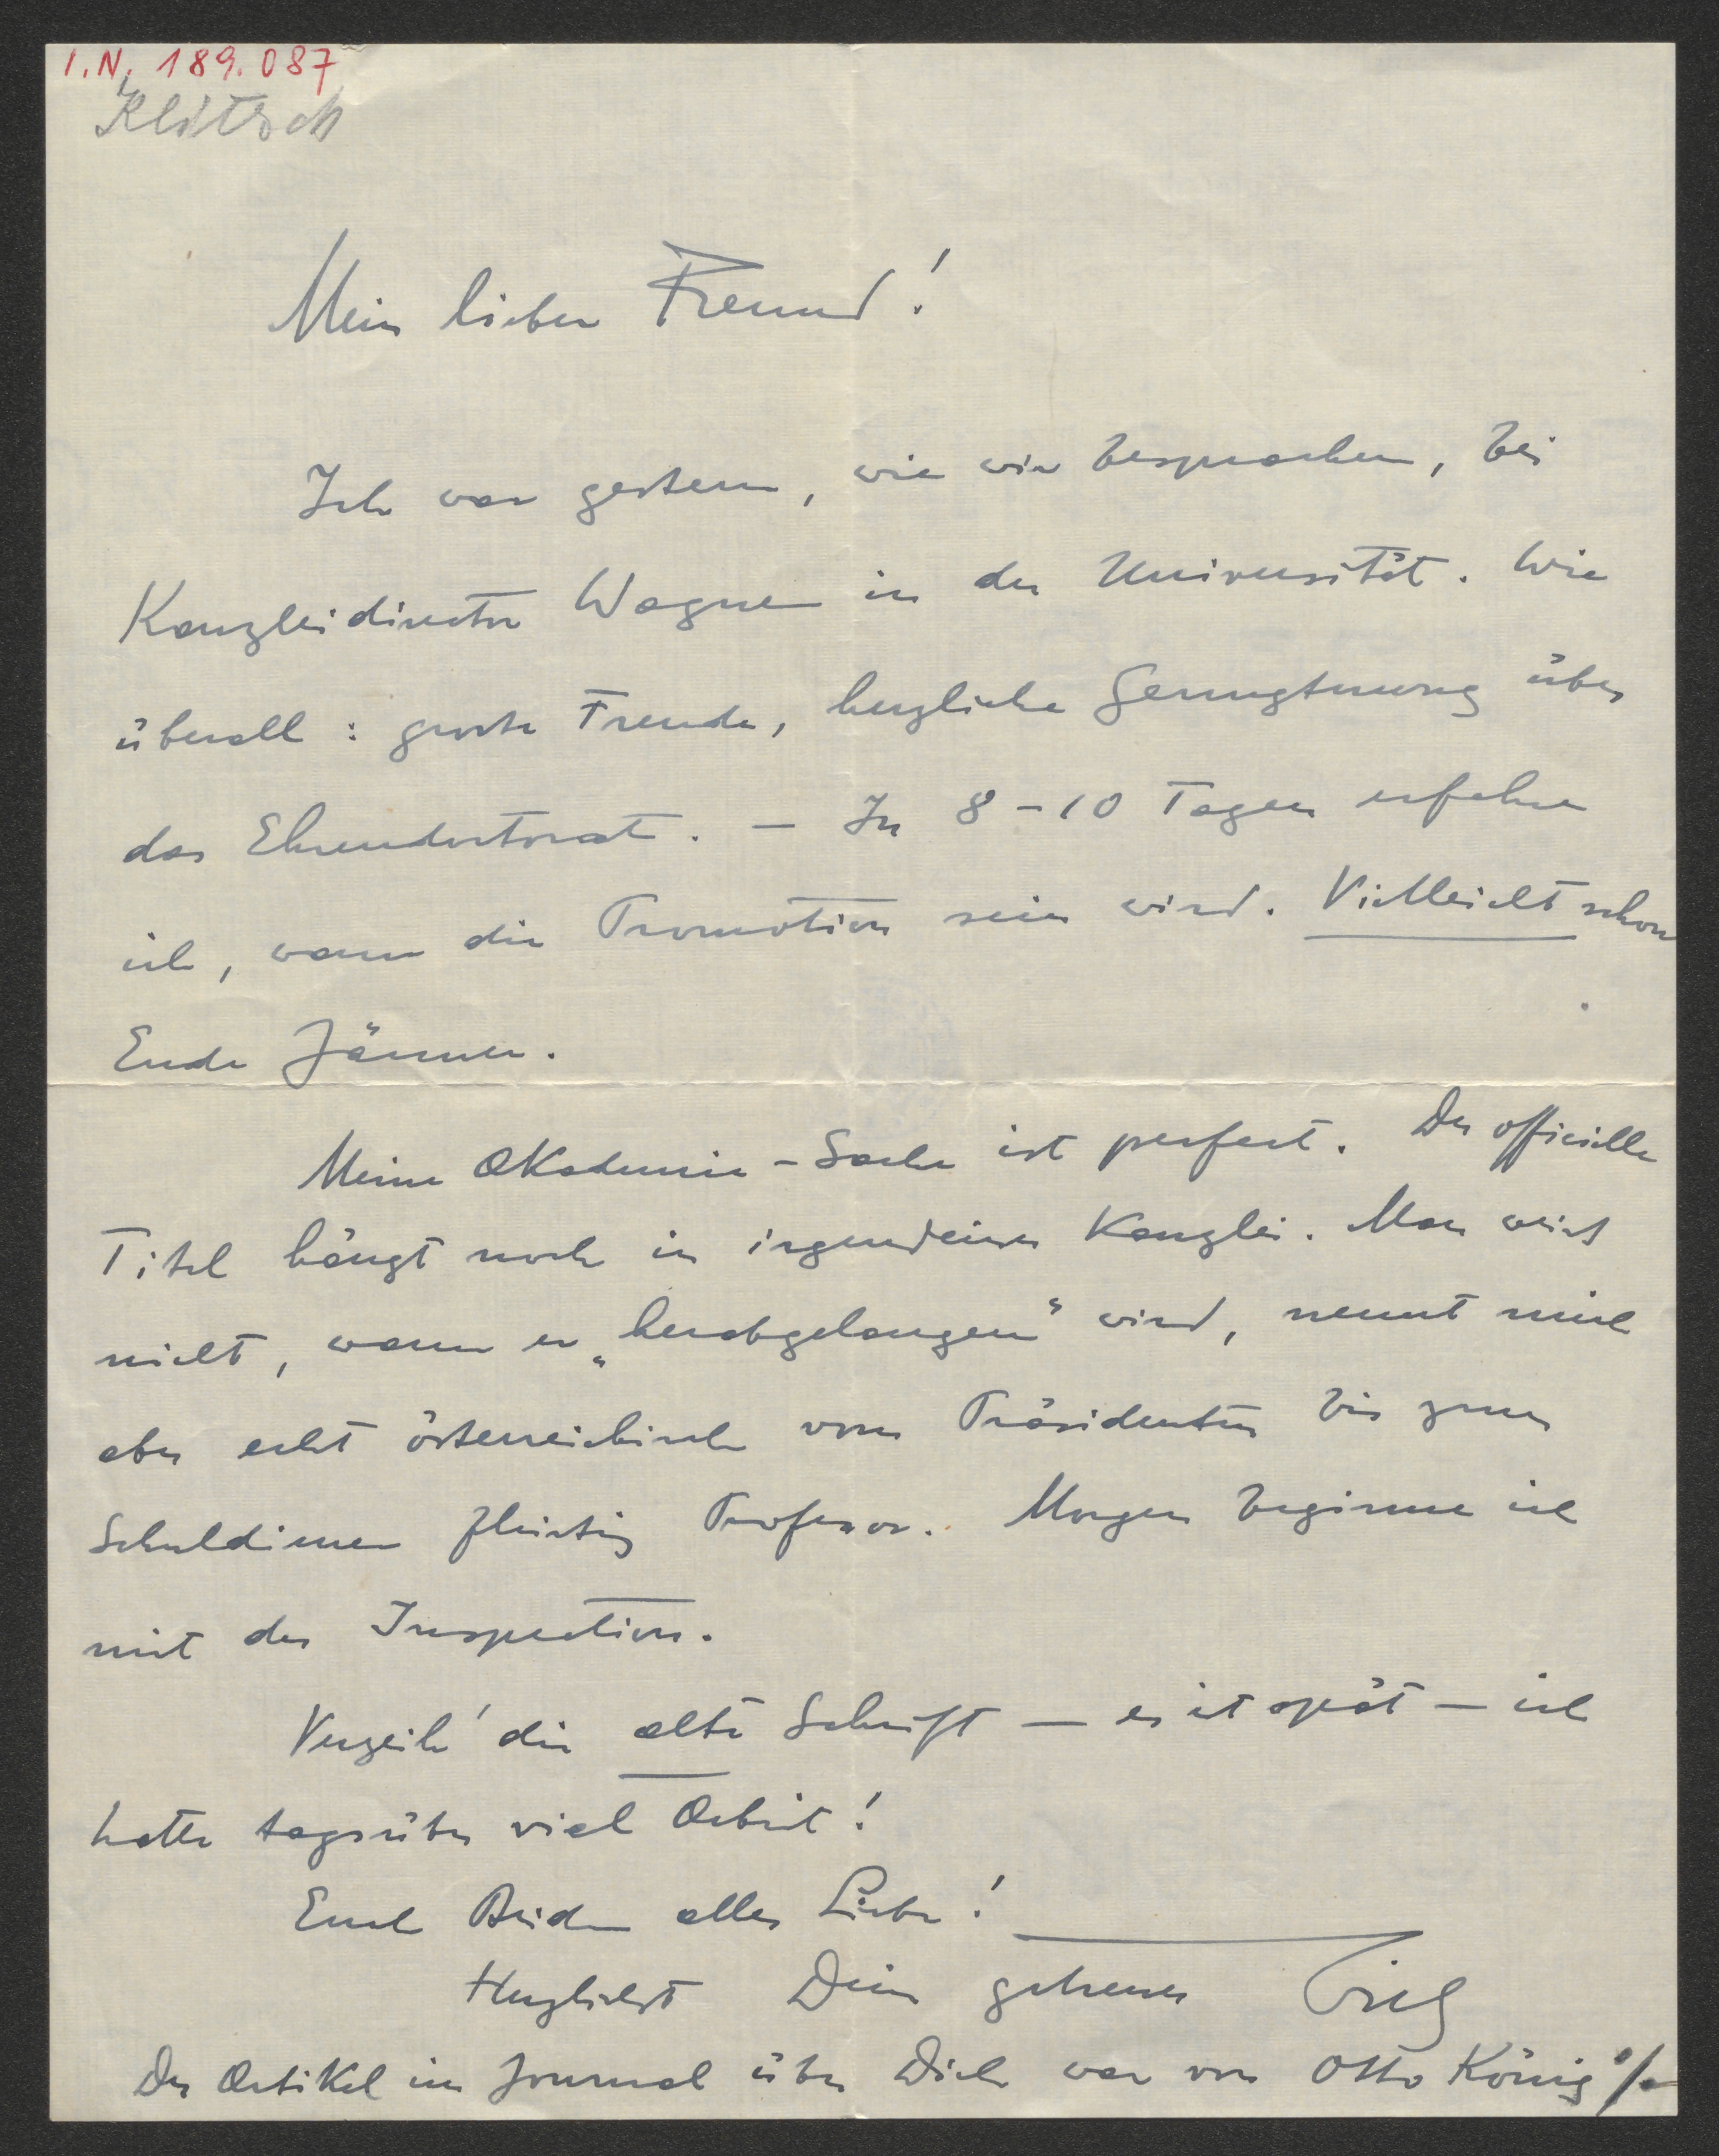 I.N. 189.087
Klitsch
Mein lieber Freund!
Ich war gestern, wie wir besprachen, bei
Kanzleidirector Wagner in der Universität. Wie
überall: grosse Freude, herzliche Genugtuung über
das Ehrendoctorat. – In 8–10 Tagen erfahre
ich, wann die Promotion sein wird. Vielleicht schon
Ende Jänner.
Meine Akademie-Sache ist perfect. Der officielle
Titel hängt noch in irgendeiner Kanzlei. Man weiss
nicht, wann er „herabgelangen" wird, nennt mich
aber echt österreichisch vom Präsidenten bis zum
Schuldiener fleissig Professor. Morgen beginne ich
mit der Inspection.
Verzeih' die alte Schrift – es ist spät – ich
hatte tagsüber viel Arbeit!
Euch Beiden alles Liebe!
Herzlichst Dein getreuer
Der Artikel im Journal über Dich war von Otto König